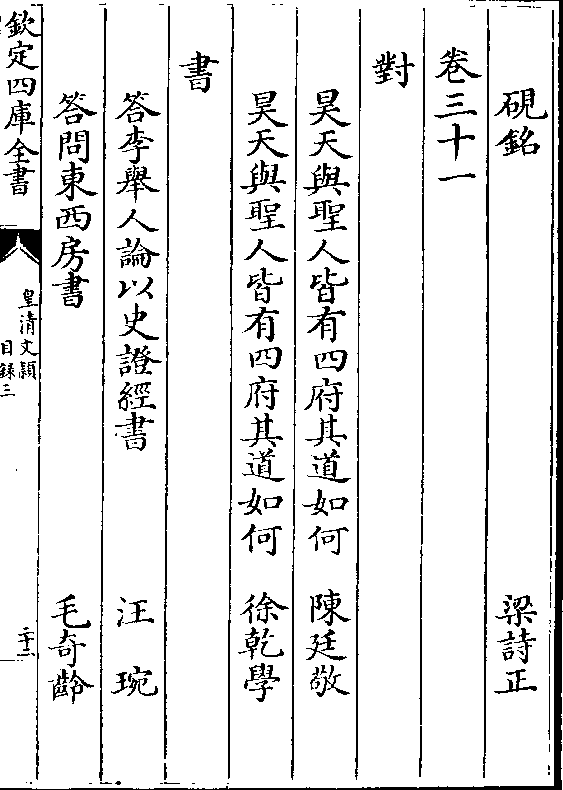 硯銘 梁詩正
卷三十一
對
昊天與聖人皆有四府其道如何 陳廷敬
昊天與聖人皆有四府其道如何 徐乾學
書
答李舉人論以史證經書 汪琬
答問東西房書 毛奇齡
欽定四庫全書
皇清文頴
目錄三
二十二